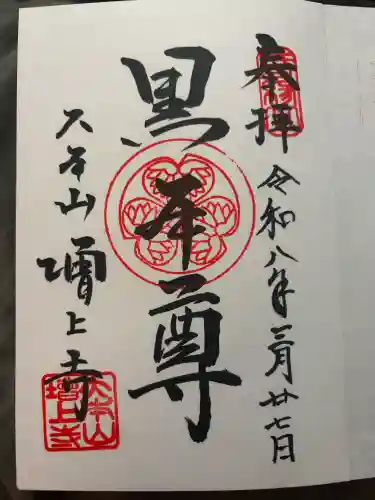 奉拝
令和八年三月廿七日
黒本尊
大本山
増上寺
大本山
増上寺